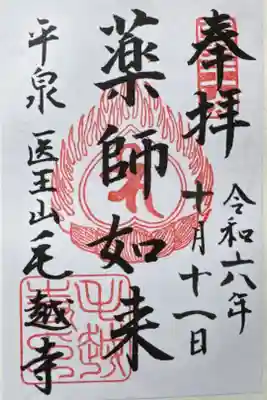 奉拝
令和六年
十月十一日
薬師如来
平泉 医王山毛越寺